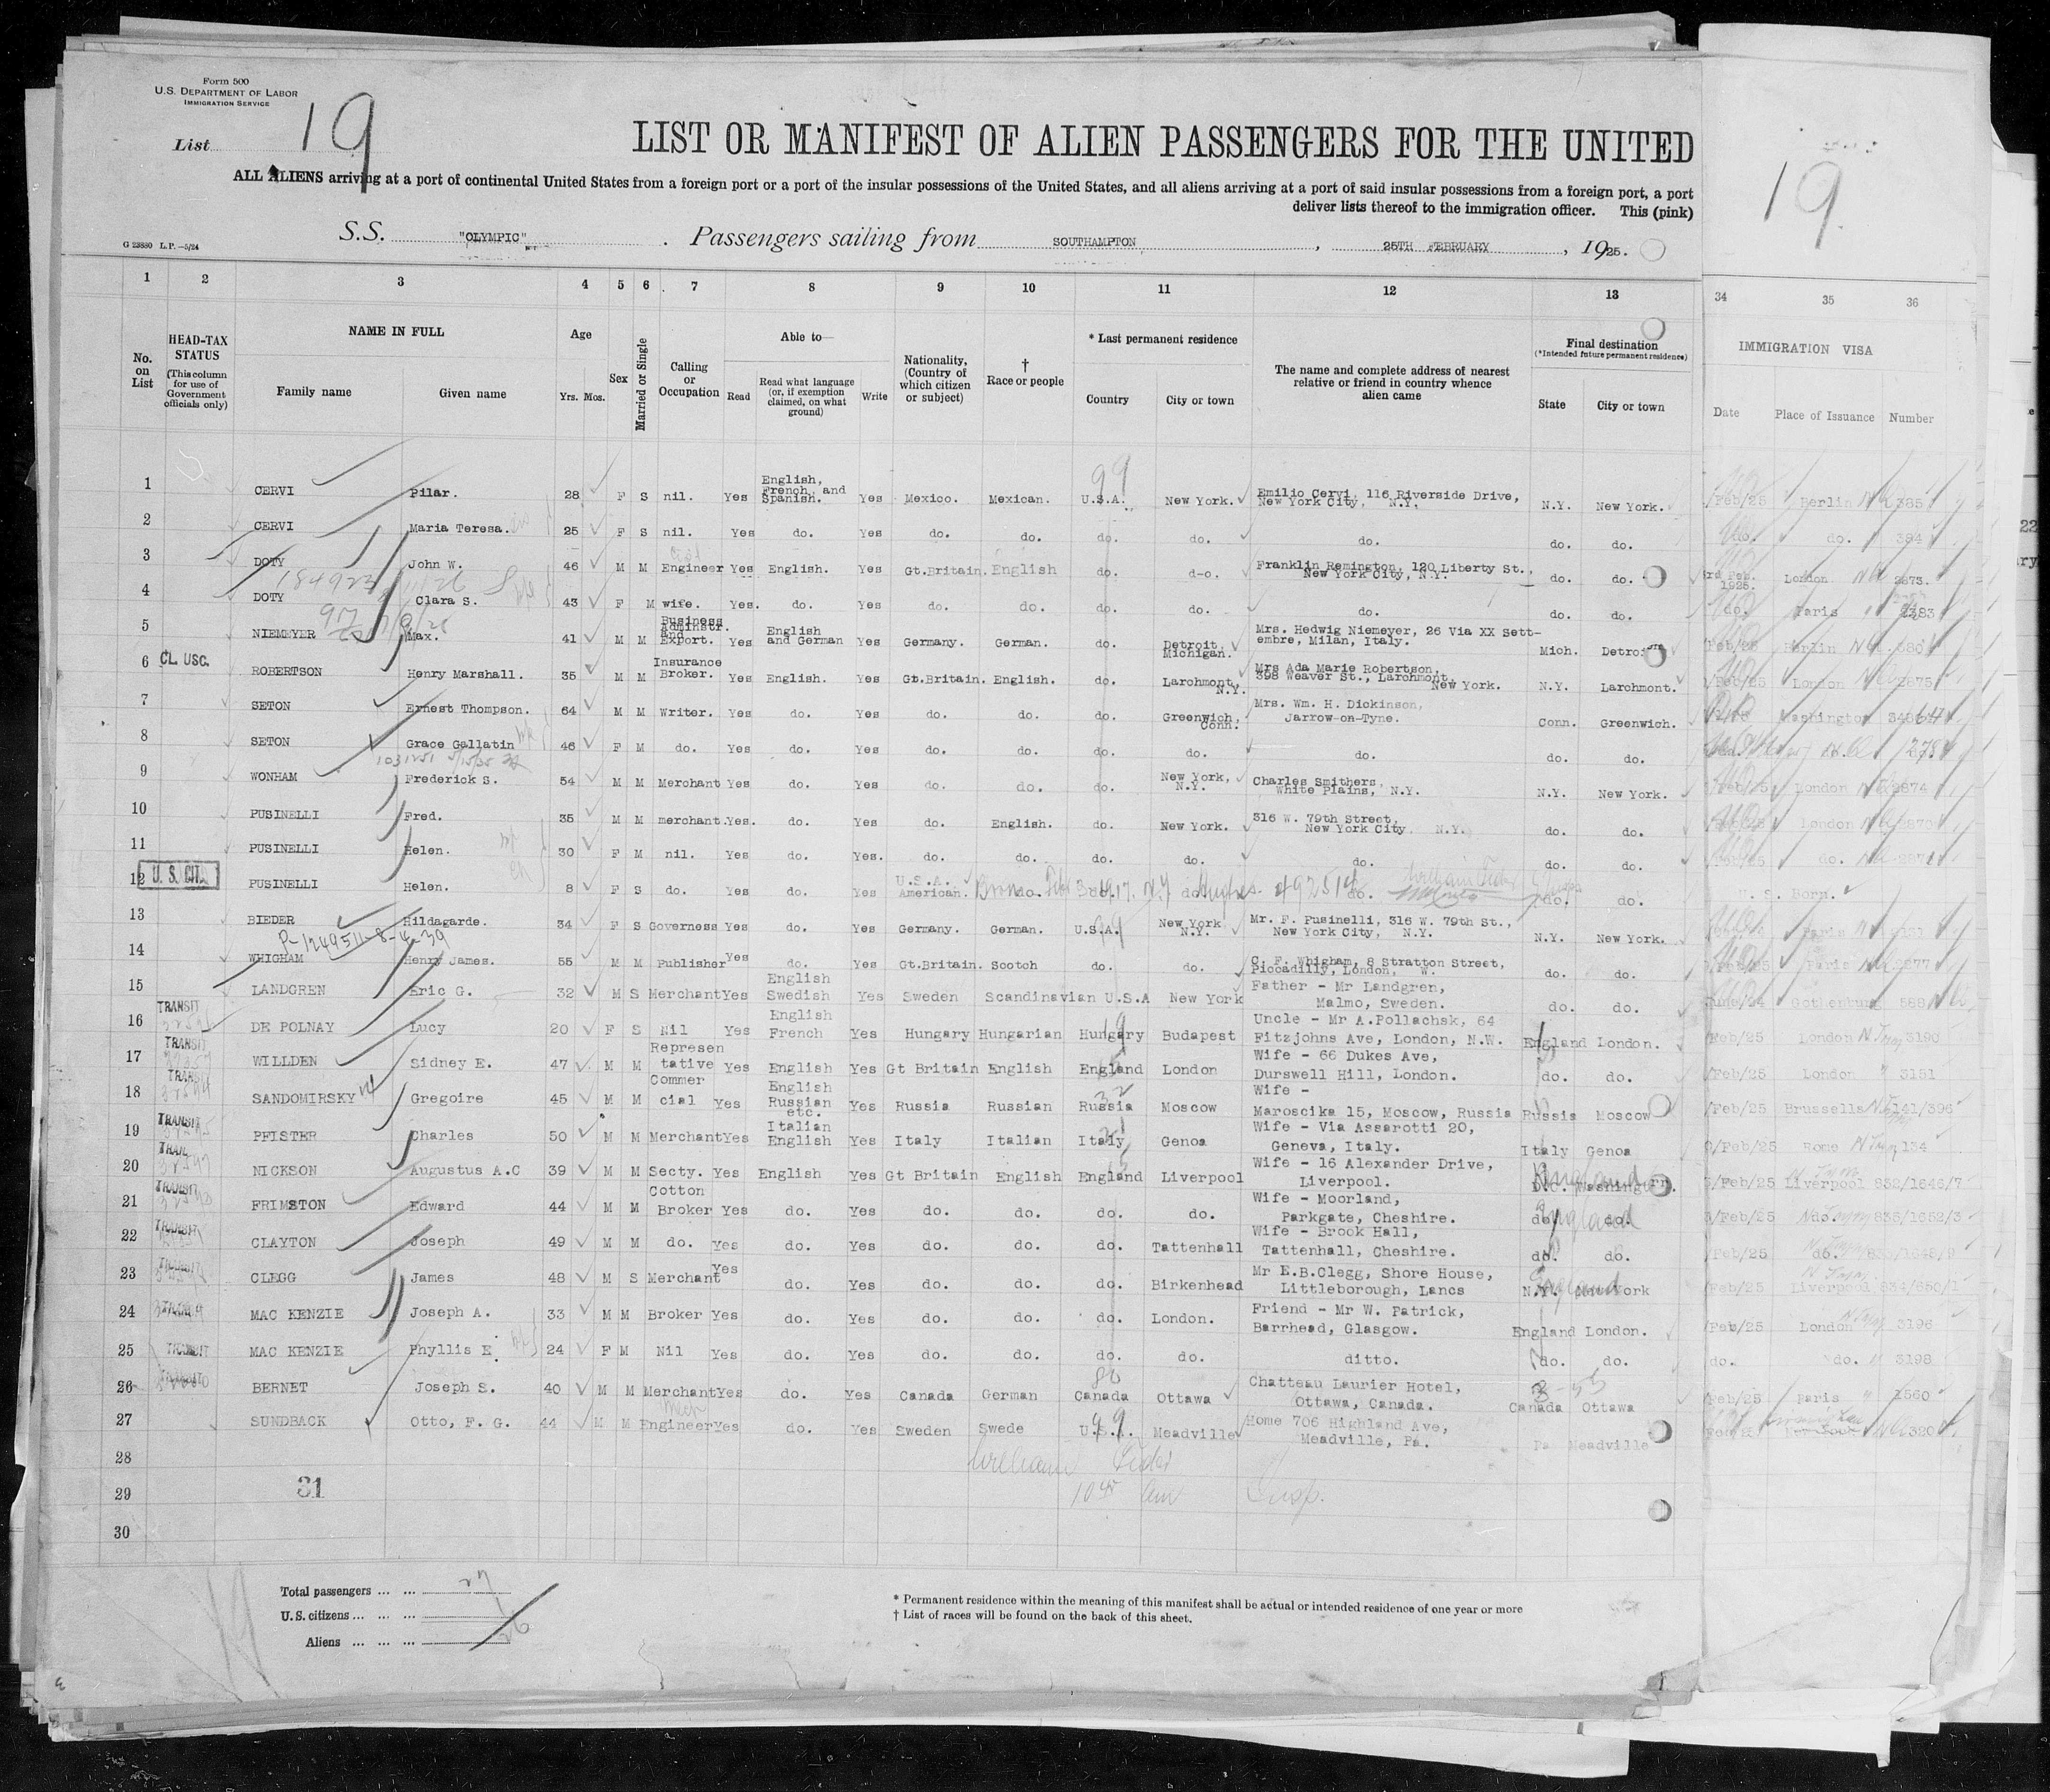 Form 500
U.S. DEPARTMENT OF LABOR
IMMIGRATION SERVICE
List 19
LIST OR MANIFEST OF ALIEN PASSENGERS FOR THE UNITED
ALL ALIENS arriving at a port of continental United States from a foreign port or a port of the insular possessions of the United States, and all aliens arriving at a port of said insular possessions from a foreign port, a port
deliver lists thereof to the immigration officer. This (pink)
G 23880 L.P.—5/24
S.S. "OLYMPIC" . Passengers sailing from SOUTHAMPTON , 25TH FEBRUARY , 1925.
19.
1 2 3 4 5 6 7 8 9 10 11 12 13 34 35 36
No. on List
HEAD-TAX STATUS (This column for use of Government officials only)
NAME IN FULL
Family name Given name
Age Yrs. Mos.
Sex
Married or Single
Calling or Occupation
Able to—
Read Read what language (or, if exemption claimed, on what ground) Write
Nationality. (Country of which citizen or subject)
† Race or people
* Last permanent residence
Country City or town
The name and complete address of nearest relative or friend in country whence alien came
Final destination (*Intended future permanent residence)
State City or town
IMMIGRATION VISA
Date Place of Issuance Number
99
1 CERVI Pilar. 28 F S nil. Yes English, French, and Spanish. Yes Mexico. Mexican. U.S.A. New York. Emilio Cervi, 116 Riverside Drive, New York City, N.Y. N.Y. New York. /Feb/25 Berlin 385
2 CERVI Maria Teresa. 25 F S nil. Yes do. Yes do. do. do. do. do. do. do. do. do. 384
3 DOTY John W. 46 M M Engineer Yes English. Yes Gt.Britain. English do. d-o. Franklin Remington, 120 Liberty St., New York City, N.Y. do. do. rd Feb. 1925. London 2873.
184923
4 DOTY Clara S. 43 F M wife. Yes. do. Yes do. do. do. do. do. do. do. do. Paris 2383
5 NIEMEYER Max. 41 M M Business Adminstr. and Export. Yes English and German Yes Germany. German. do. Detroit, Michigan. Mrs. Hedwig Niemeyer, 26 Via XX Sett-embre, Milan, Italy. Mich. Detroit /Feb/25 Berlin
6 CL. USC. ROBERTSON Henry Marshall. 35 M M Insurance Broker. Yes English. Yes Gt.Britain. English. do. Larchmont, N.Y. Mrs Ada Marie Robertson, 398 Weaver St., Larchmont, New York. N.Y. Larchmont. /Feb/25 London 2875
7 SETON Ernest Thompson. 64 M M Writer. Yes do. Yes do. do. do. Greenwich, Conn. Mrs. Wm. H. Dickinson, Jarrow-on-Tyne. Conn. Greenwich. Washington
8 SETON Grace Gallatin 46 F M do. Yes do. Yes do. do. do. do. do. do. do.
1031251 5/15/35
9 WONHAM Frederick S. 54 M M Merchant Yes do. Yes do. do. do. New York, N.Y. Charles Smithers, White Plains, N.Y. N.Y. New York. London 2874
10 PUSINELLI Fred. 35 M M merchant. Yes. do. Yes do. English. do. New York. 316 W. 79th Street, New York City N.Y. do. do. London
11 PUSINELLI Helen. 30 F M nil. Yes do. Yes. do. do. do. do. do. do. do. do.
12 U. S. CIT. PUSINELLI Helen. 8 F S do. Yes do. Yes U.S.A. American. do. do. do. do. do. do. U. S. Born.
13 BIEDER Hildagarde. 34 F S Governess Yes do. Yes Germany. German. U.S.A. New York N.Y. Mr. F. Pusinelli, 316 W. 79th St., New York City, N.Y. N.Y. New York. Paris
P-1249511-8-4-39
14 WHIGHAM Henry James. 55 M M Publisher Yes do. Yes Gt.Britain. Scotch do. do. C. F. Whigham, 8 Stratton Street, Piccadilly, London, W. do. do. Paris 2877
15 LANDGREN Eric G. 32 M S Merchant Yes English Swedish Yes Sweden Scandinavian U.S.A New York Father - Mr Landgren, Malmo, Sweden. do. do. June/24 Gothenburg 588
16 TRANSIT DE POLNAY Lucy 20 F S Nil Yes English French Yes Hungary Hungarian Hungary Budapest Uncle - Mr A.Pollachsk, 64 Fitzjohns Ave, London, N.W. England London. /Feb/25 London 3190
17 TRANSIT WILLDEN Sidney E. 47 M M Representative Yes English Yes Gt Britain English England London Wife - 66 Dukes Ave, Durswell Hill, London. do. do. /Feb/25 London 3151
18 TRANSIT SANDOMIRSKY Gregoire 45 M M Commercial Yes English Russian etc. Yes Russia Russian Russia Moscow Wife - Maroscika 15, Moscow, Russia Russia Moscow /Feb/25 Brussells 141/396
19 TRANSIT PFISTER Charles 50 M M Merchant Yes Italian English Yes Italy Italian Italy Genoa Wife - Via Assarotti 20, Geneva, Italy. Italy Genoa 0/Feb/25 Rome 134
20 NICKSON Augustus A.C 39 M M Secty. Yes English Yes Gt Britain English England Liverpool Wife - 16 Alexander Drive, Liverpool. D.C. Washington. England /Feb/25 Liverpool 832/1646/7
21 TRANSIT FRIMSTON Edward 44 M M Cotton Broker Yes do. Yes do. do. do. do. Wife - Moorland, Parkgate, Cheshire. do. do. England /Feb/25 do. 836/1652/3
22 TRANSIT CLAYTON Joseph 49 M M do. Yes do. Yes do. do. do. Tattenhall Wife - Brook Hall, Tattenhall, Cheshire. do. do. /Feb/25 do.
23 TRANSIT CLEGG James 48 M S Merchant Yes do. Yes do. do. do. Birkenhead Mr E.B.Clegg, Shore House, Littleborough, Lancs N.Y. New York England /Feb/25 Liverpool 834/650/1
24 MAC KENZIE Joseph A. 33 M M Broker Yes do. Yes do. do. do. London. Friend - Mr W. Patrick, Barrhead, Glasgow. England London. /Feb/25 London 3196
25 TRANSIT MAC KENZIE Phyllis E. 24 F M Nil Yes do. Yes do. do. do. do. ditto. do. do. do. do. 3198
26 BERNET Joseph S. 40 M M Merchant Yes do. Yes Canada German Canada Ottawa Chatteau Laurier Hotel, Ottawa, Canada. Canada Ottawa /Feb/25 Paris 1560
27 SUNDBACK Otto, F. G. 44 M M Engineer Yes do. Yes Sweden Swede U.S.A. Meadville Home 706 Highland Ave, Meadville, Pa. Pa Meadville 320
28
29 31
30
Total passengers ... ... 27
U.S. citizens ... ... ... 1
Aliens ... ... ... 26
* Permanent residence within the meaning of this manifest shall be actual or intended residence of one year or more
† List of races will be found on the back of this sheet.